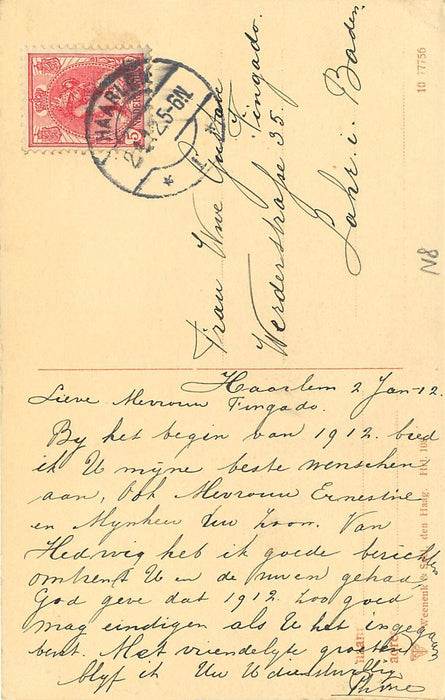 HAARLEM
5-6N
Frau Wwe Gustav
Fingado.
Werderstraße 35.
Lahr. i. Baden.
10 77756
N8
Haarlem 2 Jan-12.
Lieve Mevrouw
Fingado.
By het begin van 1912. bied
ik U myne beste wenschen
aan, Ook Mevrouw Ernestine
en Mynheer Uw Zoon. Van
Hedwig heb ik goede berichten
omtrent U en de uwen gehad,
God geve dat 1912. zoo goed
mag eindigen als U het ingegaan
bent. Met vriendelyke groeten
blyf ik Uw Udienstwillige
naam:
adres:
Weenenk & Sn den Haag. Hkl. 10